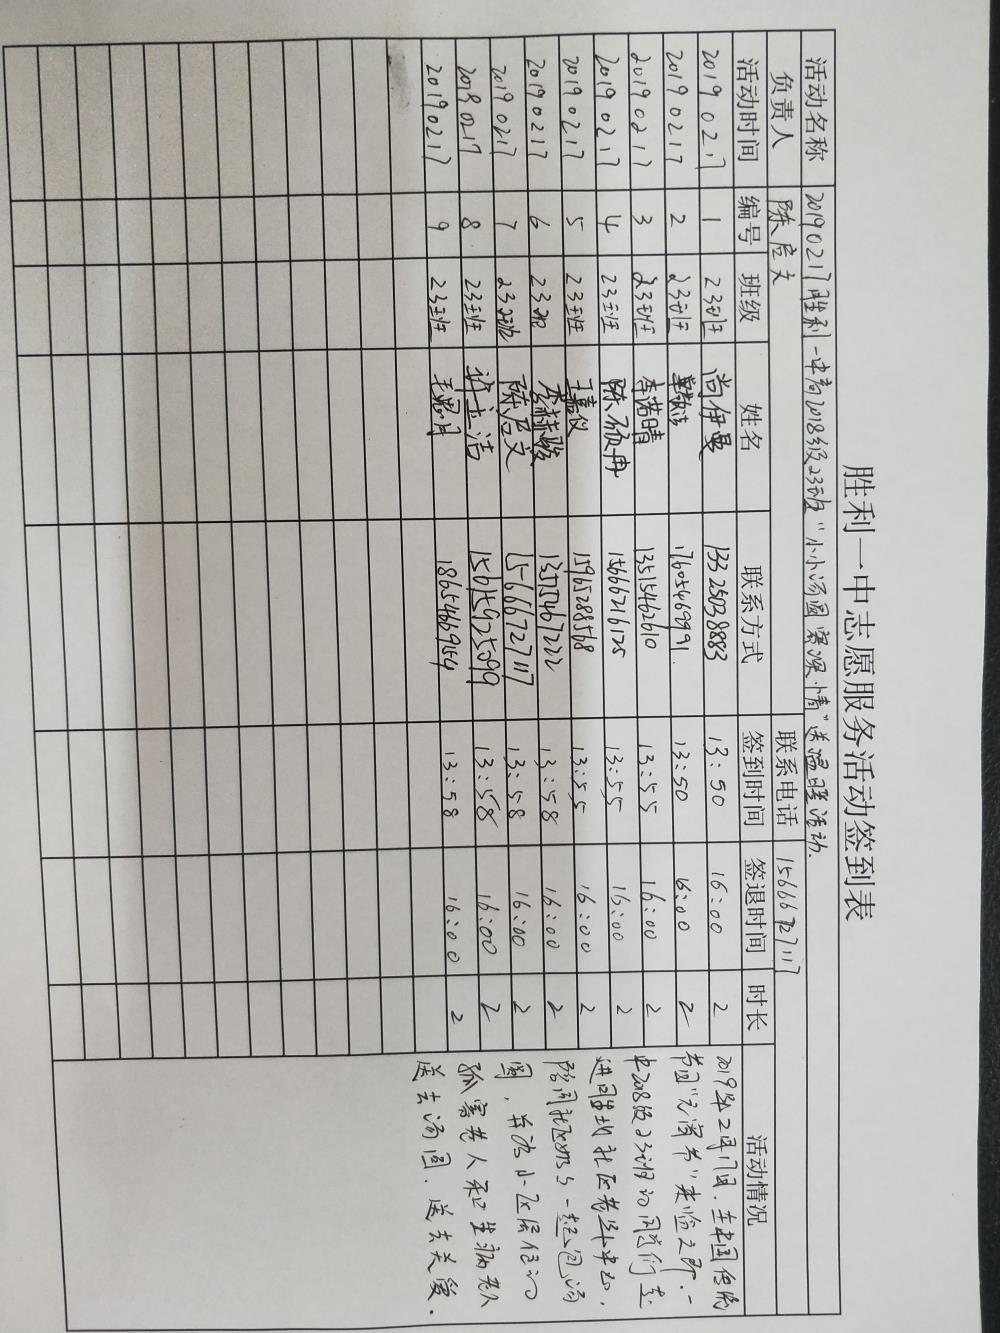 胜利一中志愿服务活动签到表
活动名称 20190217胜利一中高2018级23班"小小汤圆寄深情"送温暖活动.
负责人 陈启文 联系电话 15666727117
活动时间 编号 班级 姓名 联系方式 签到时间 签退时间 时长 活动情况
20190217 1 23班 尚伊曼 13325038883 13:50 16:00 2
20190217 2 23班 17605469991 13:50 16:00 2
20190217 3 23班 李浩晴 13515462610 13:55 16:00 2
20190217 4 23班 陈硕冉 15666216125 13:55 16:00 2
20190217 5 23班 王嘉仪 15965288568 13:55 16:00 2
20190217 6 23班 李赫骏 13515467222 13:58 16:00 2
20190217 7 23班 陈启文 15666727117 13:58 16:00 2
20190217 8 23班 许立洁 15615925099 13:58 16:00 2
20190217 9 23班 18654669154 13:58 16:00 2
2019年2月17日,在中国传统
节日"元宵节"来临之际,一
中2018级23班的同学们走
进 社区老年中心,
陪同社区 一起包汤
圆,并为小区居住的
孤寡老人和生病老人
送去汤圆,送去关爱.